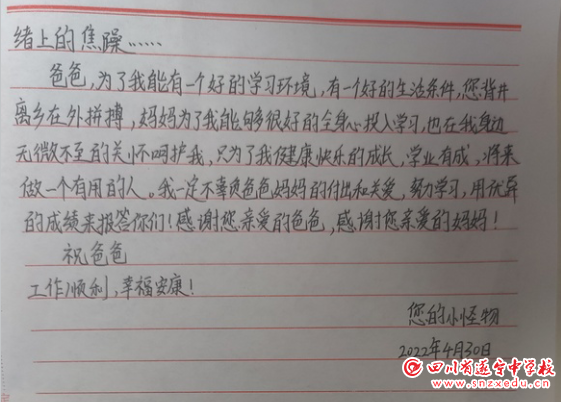 绪上的焦躁……
爸爸,为了我能有一个好的学习环境,有一个好的生活条件,您背井
离乡在外拼搏,妈妈为了我能够很好的全身心投入学习,也在我身边
无微不至的关怀呵护我,只为了我健康快乐的成长,学业有成,将来
做一个有用的人。我一定不辜负爸爸妈妈的付出和关爱,努力学习,用优异
的成绩来报答你们!感谢您亲爱的爸爸,感谢您亲爱的妈妈!
祝爸爸
工作顺利,幸福安康!
您的小怪物
2022年4月30日
四川省遂宁中学校
www.snzxedu.cn